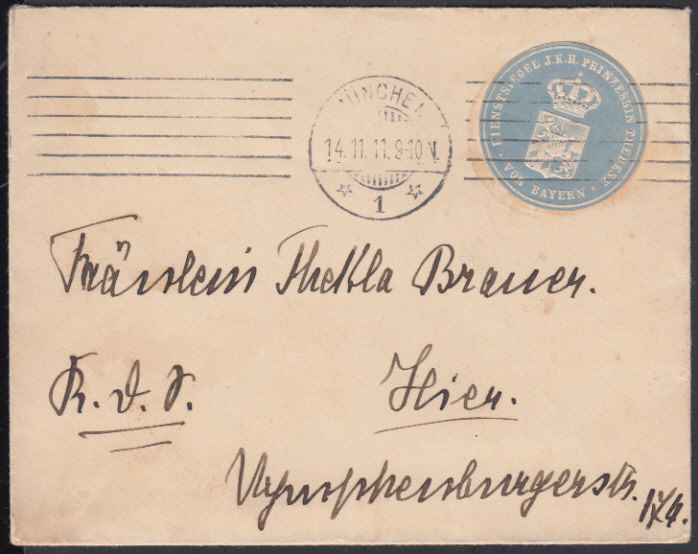 MÜNCHEN
14.11.11.9-10 V.
1
DIENSTSIEGEL J.K.H. PRINZESSIN THERESE
VON BAYERN
Fräulein Thekla Brauer.
R. d. J. Hier.
Nymphenburgerstr.
174.